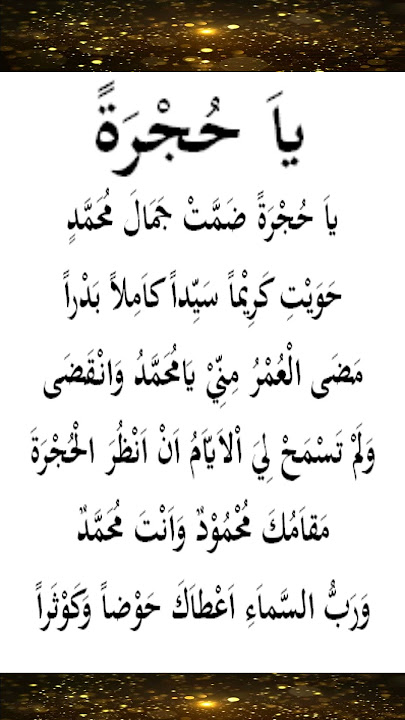 ياَ حُجْرَةً
ياَ حُجْرَةً ضَمَّتْ جَمَالَ مُحَمَّدٍ
حَوَيْتِ كَرِيْماً سَيِّداً كاَمِلاً بَدْراً
مَضَى الْعُمْرُ مِنِّيْ يَامُحَمَّدُ وَانْقَضَى
وَلَمْ تَسْمَحْ لِيَ اْلاَيَّامُ اَنْ اَنْظُرَ الْحُجْرَةَ
مَقاَمُكَ مُحْمُوْدٌ وَاَنْتَ مُحَمَّدٌ
وَرَبُّ السَّماَءِ اَعْطاَكَ حَوْضاً وَكَوْثَراً